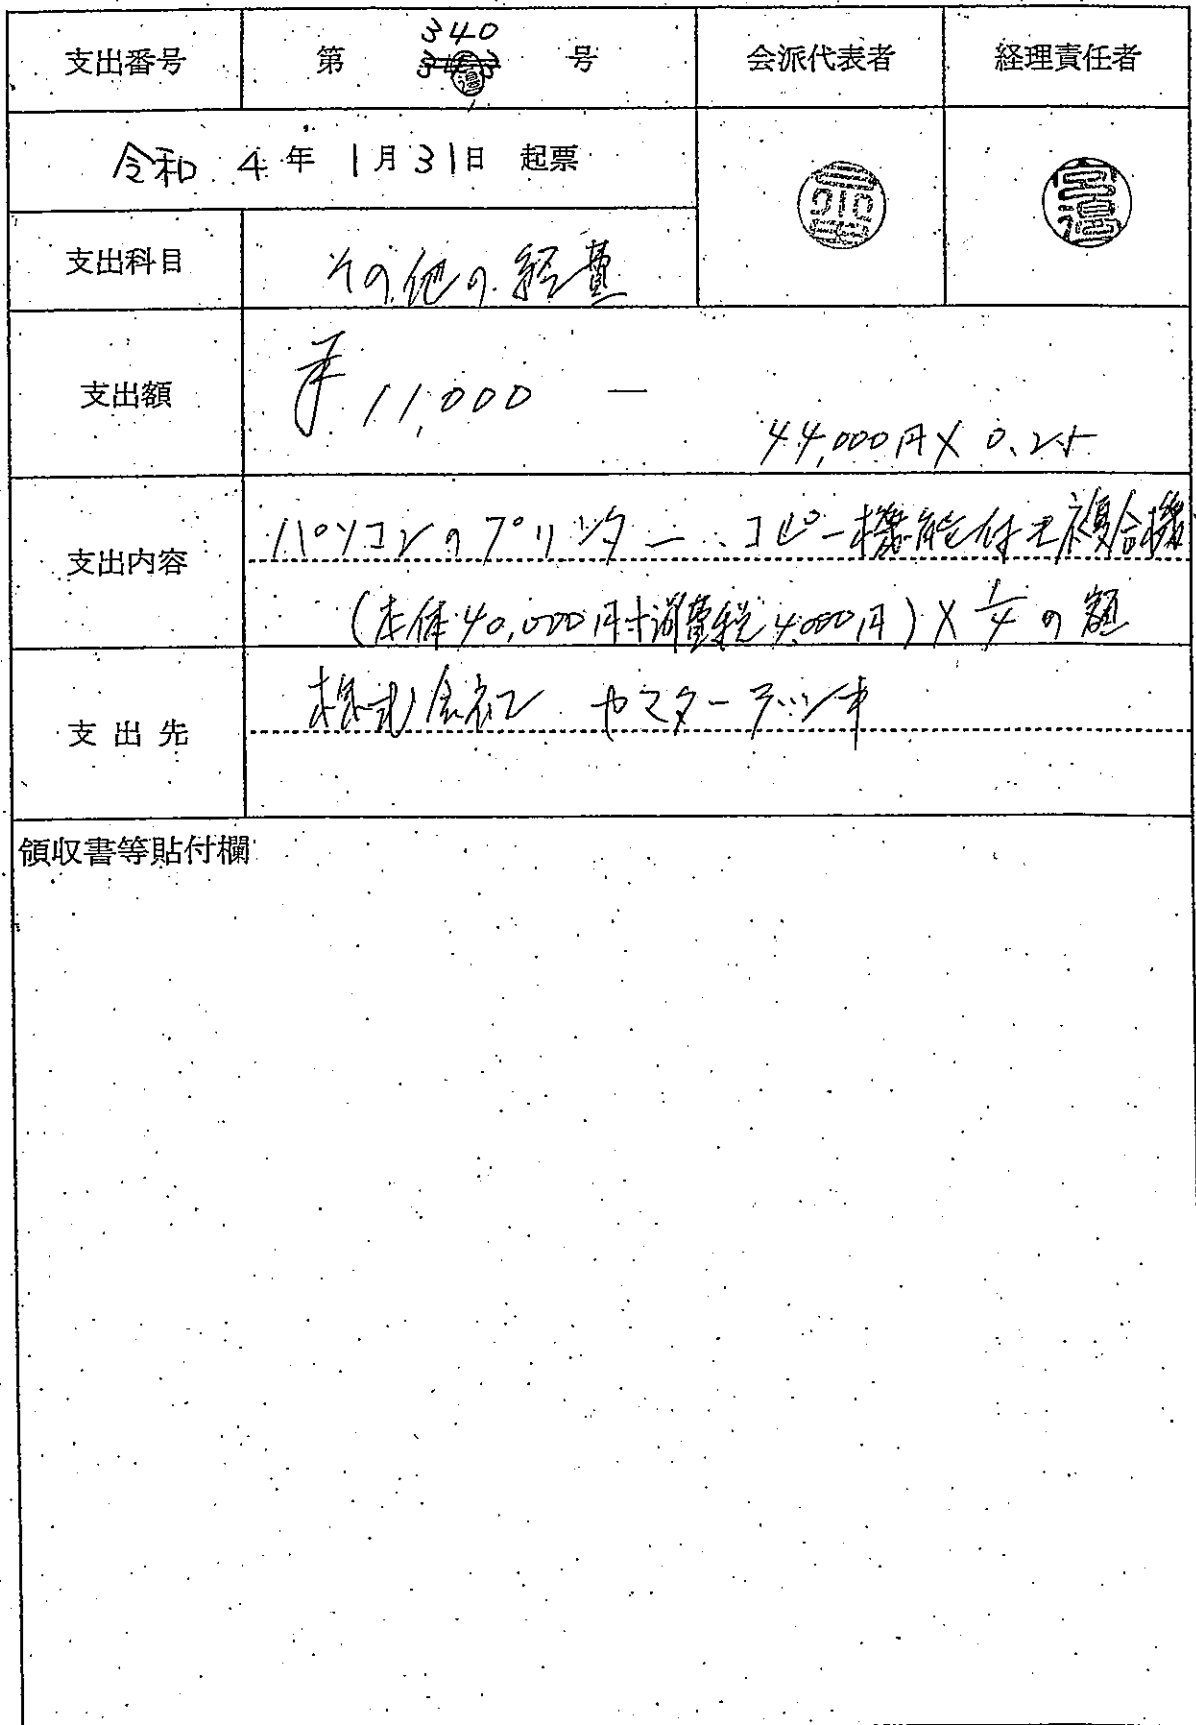 支出番号 第 340 号 会派代表者 経理責任者
令和 4 年 1月31日 起票
支出科目 その他の経費
支出額 ¥11,000 ―
44,000円×0.25
支出内容 パソコンのプリンター、コピー機能付き複合機
(本体40,000円+消費税4,000円)×1/4の額
支出先 株式会社 ヤマターテック
領収書等貼付欄